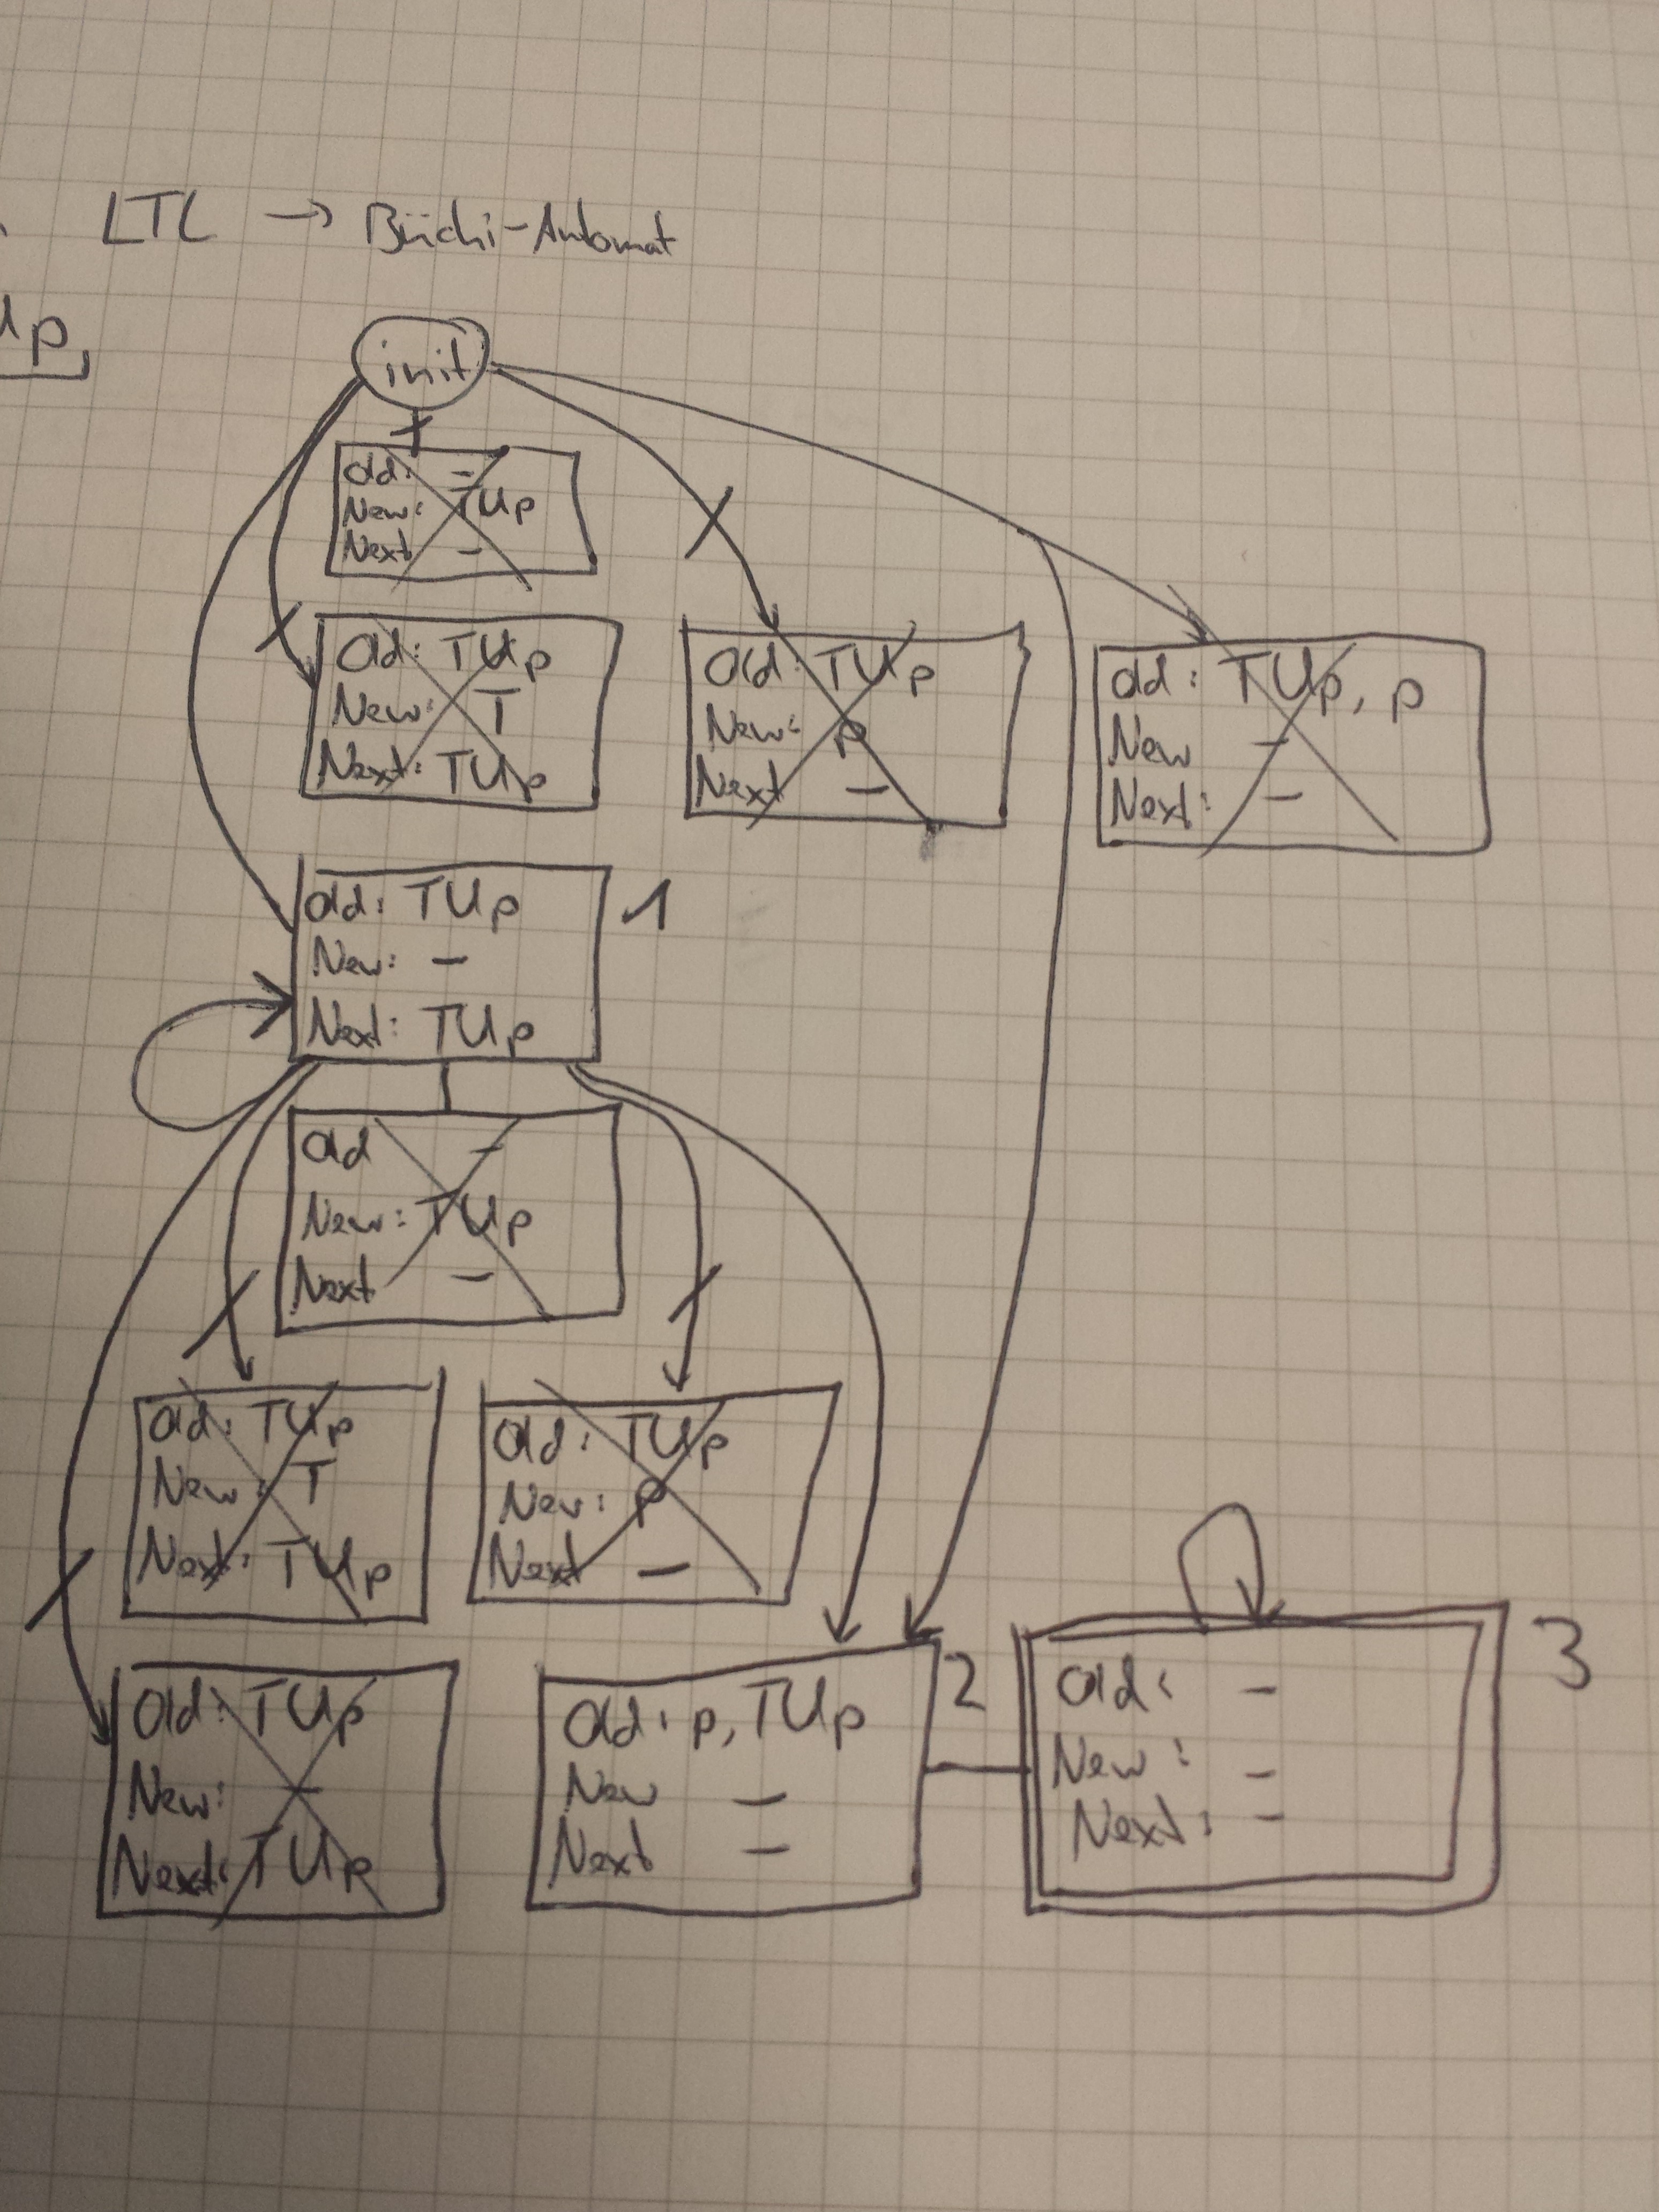 LTL → Büchi-Automat
Up
init
Old: -
New: TUp
Next -
Old: TUp
New: T
Next: TUp
Old: TUp
New: p
Next -
Old: TUp, p
New -
Next: -
Old: TUp
New: -
Next: TUp
1
Old -
New: TUp
Next -
Old: TUp
New: T
Next: TUp
Old: TUp
New: p
Next -
Old: TUp
New: -
Next: TUp
Old: p, TUp
New -
Next -
2
Old: -
New: -
Next: -
3